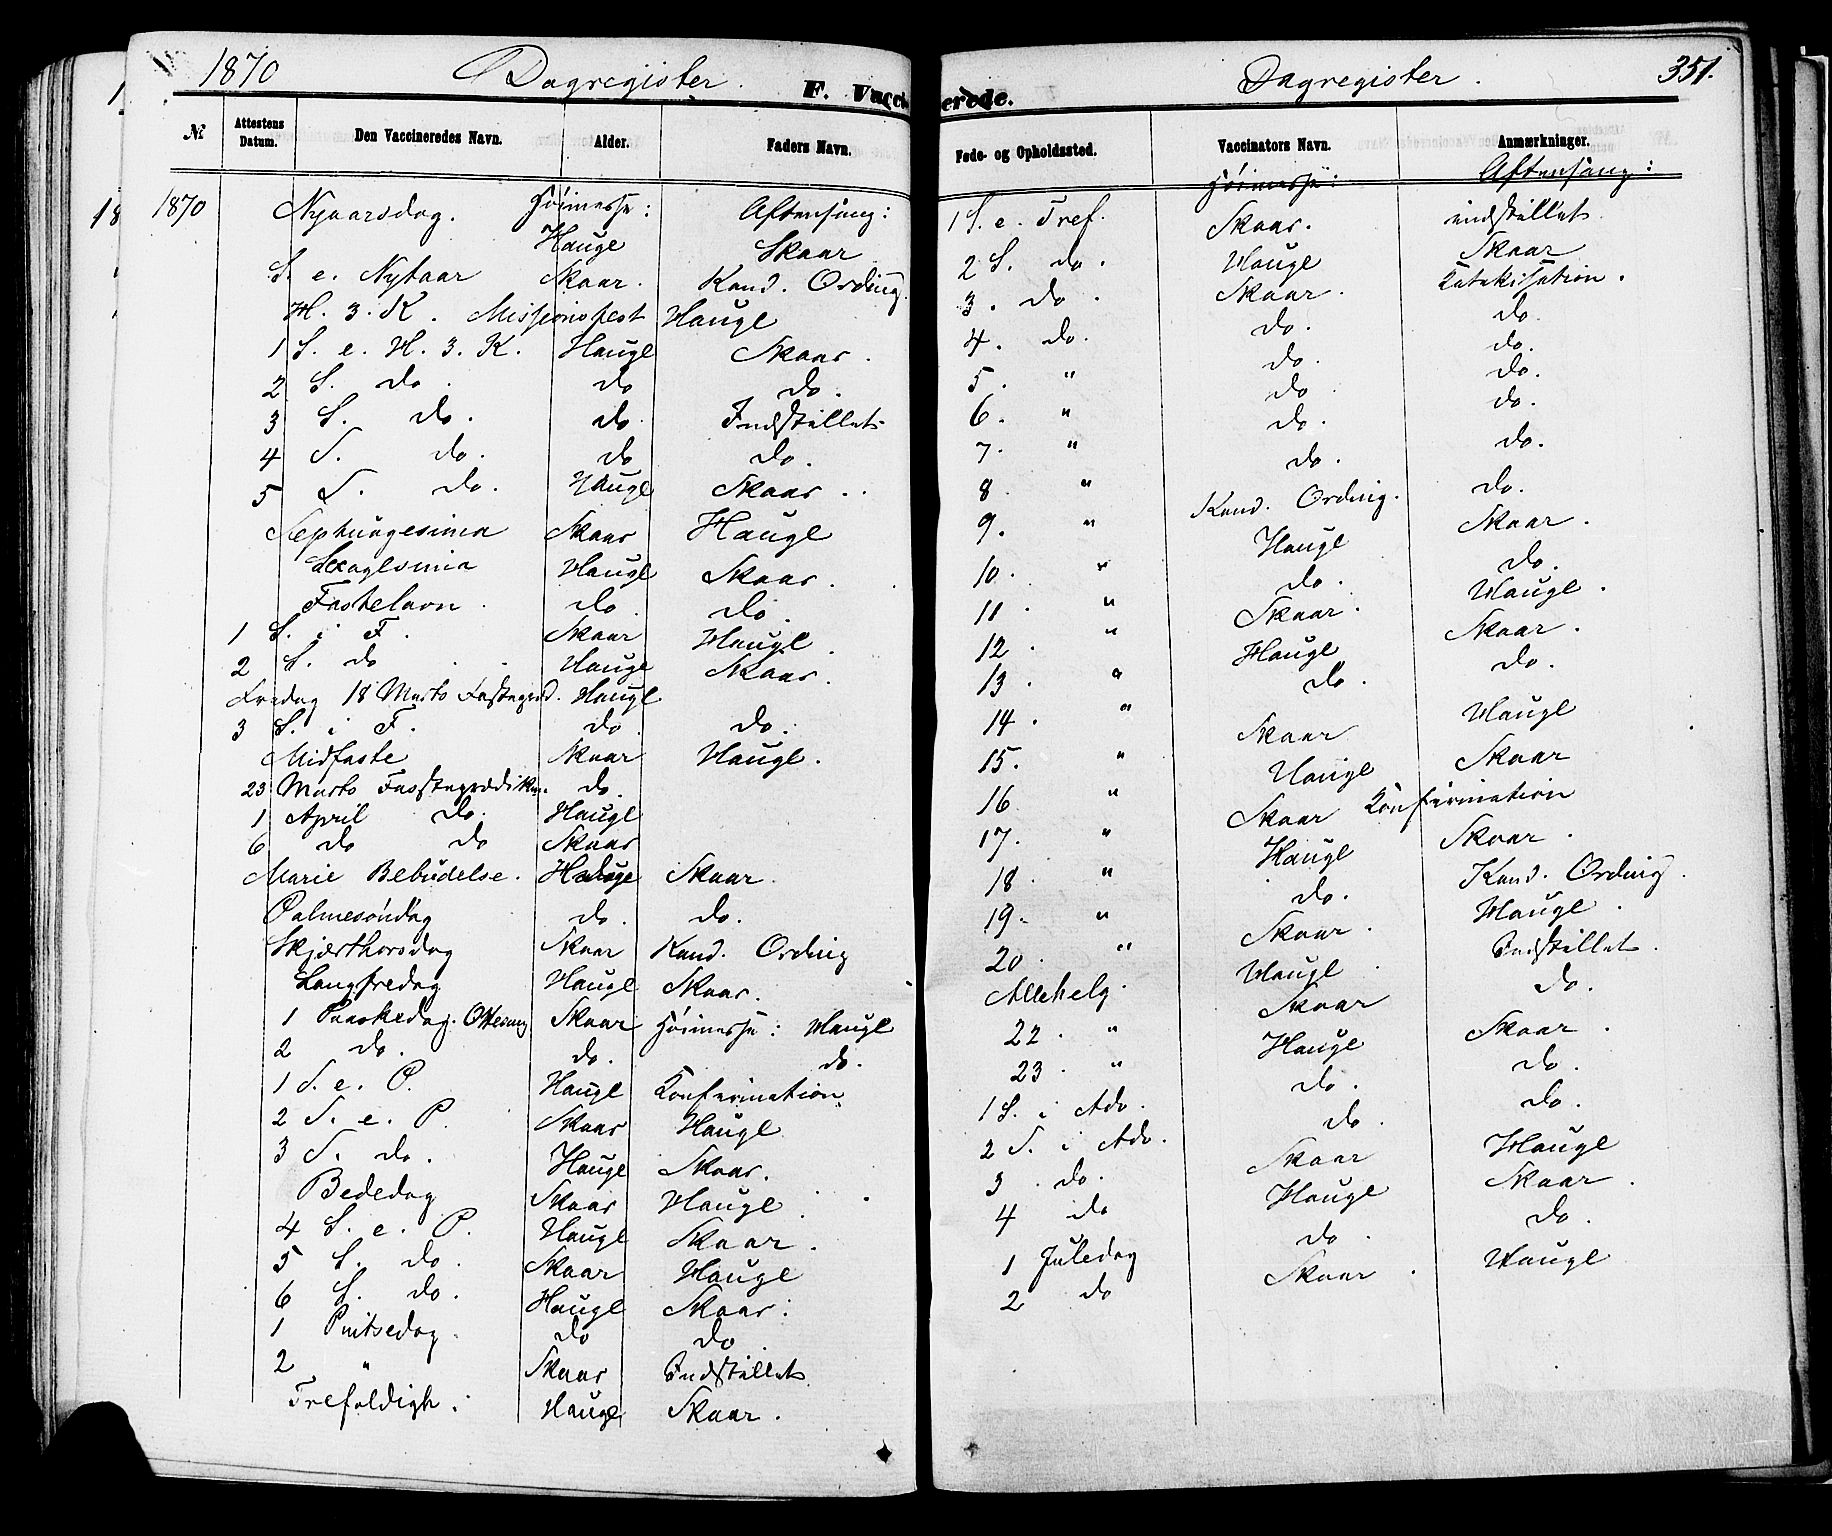 1870 Dagregister.
F. Vacci
№ Attestens Datum. Den Vaccineredes Navn. Alder. Faders Navn.
1870 Nyaarsdag. Høimesse: Aftensang:
Hauge Skaar
S. e. Nytaar Skaar. Kand. Ording.
H. 3. K. Missionsfest Hauge
1 S. e. H. 3. K. Hauge Skaar.
2 S. do. do do.
3 S. do. do. Indstillet
4 S. do. do do.
5 S. do. Hauge Skaar.
Septuagesima Skaar Hauge
Sexagesima Hauge Skaar.
Fastelavn. do. do.
1 S. i F. Skaar Hauge.
2 S. do Hauge Skaar.
Fredag 18 Marts Fastepræd. Hauge
3 S. i F. do. do.
Midfaste Skaar Hauge.
23 Marts Fasteprædiken do.
1 April do. Hauge
6 do do Skaar
Marie Bebudelse. Hauge Skaar.
Palmesøndag do. do.
Skjærthorsdag Skaar Kand. Ording
Langfredag Hauge Skaar.
1 Paaskedag. Ottesang Skaar Høimesse: Hauge
2 do. do. do.
1 S. e. P. Hauge Konfirmation.
2 S. e. P. Skaar Hauge
3 S. do. Hauge Skaar.
Bededag Skaar Hauge.
4 S. e. P. Hauge Skaar.
5 S. do. Skaar Hauge
6 S. do. Hauge Skaar.
1 Pintsedag. do do
2 " Skaar Indstillet
Trefoldigh. Hauge Skaar.
Dagregister. 351.
erede.
Føde- og Opholdssted. Vaccinators Navn. Anmærkninger.
Høimesse: Aftensang:
1 S. e. Tref. Skaar. indstillet.
2 S. do. Hauge Skaar
3. do. Skaar. Katekisation.
4. do. do. do.
5. " do. do.
6. " do. do.
7. " do. do.
8. " do. do.
9. " Kand. Ording. do.
10. " Hauge Skaar.
11. " do. do.
12. " Skaar. Hauge.
13. " Hauge Skaar.
14. " do. do.
15. " Skaar Hauge
16 " Hauge Skaar
17. " Skaar Konfirmation
18 " Hauge Skaar.
19. " do. Kand. Ording.
20. " Skaar. Hauge.
Allehelg. Hauge. Indstillet.
22. " Skaar do.
23. " Hauge Skaar.
1 S. i Adv. do. do.
2 S. i Adv. do. do.
3. do. Skaar Hauge
4 do Hauge Skaar.
1 Juledag do. do.
2 do Skaar. Hauge